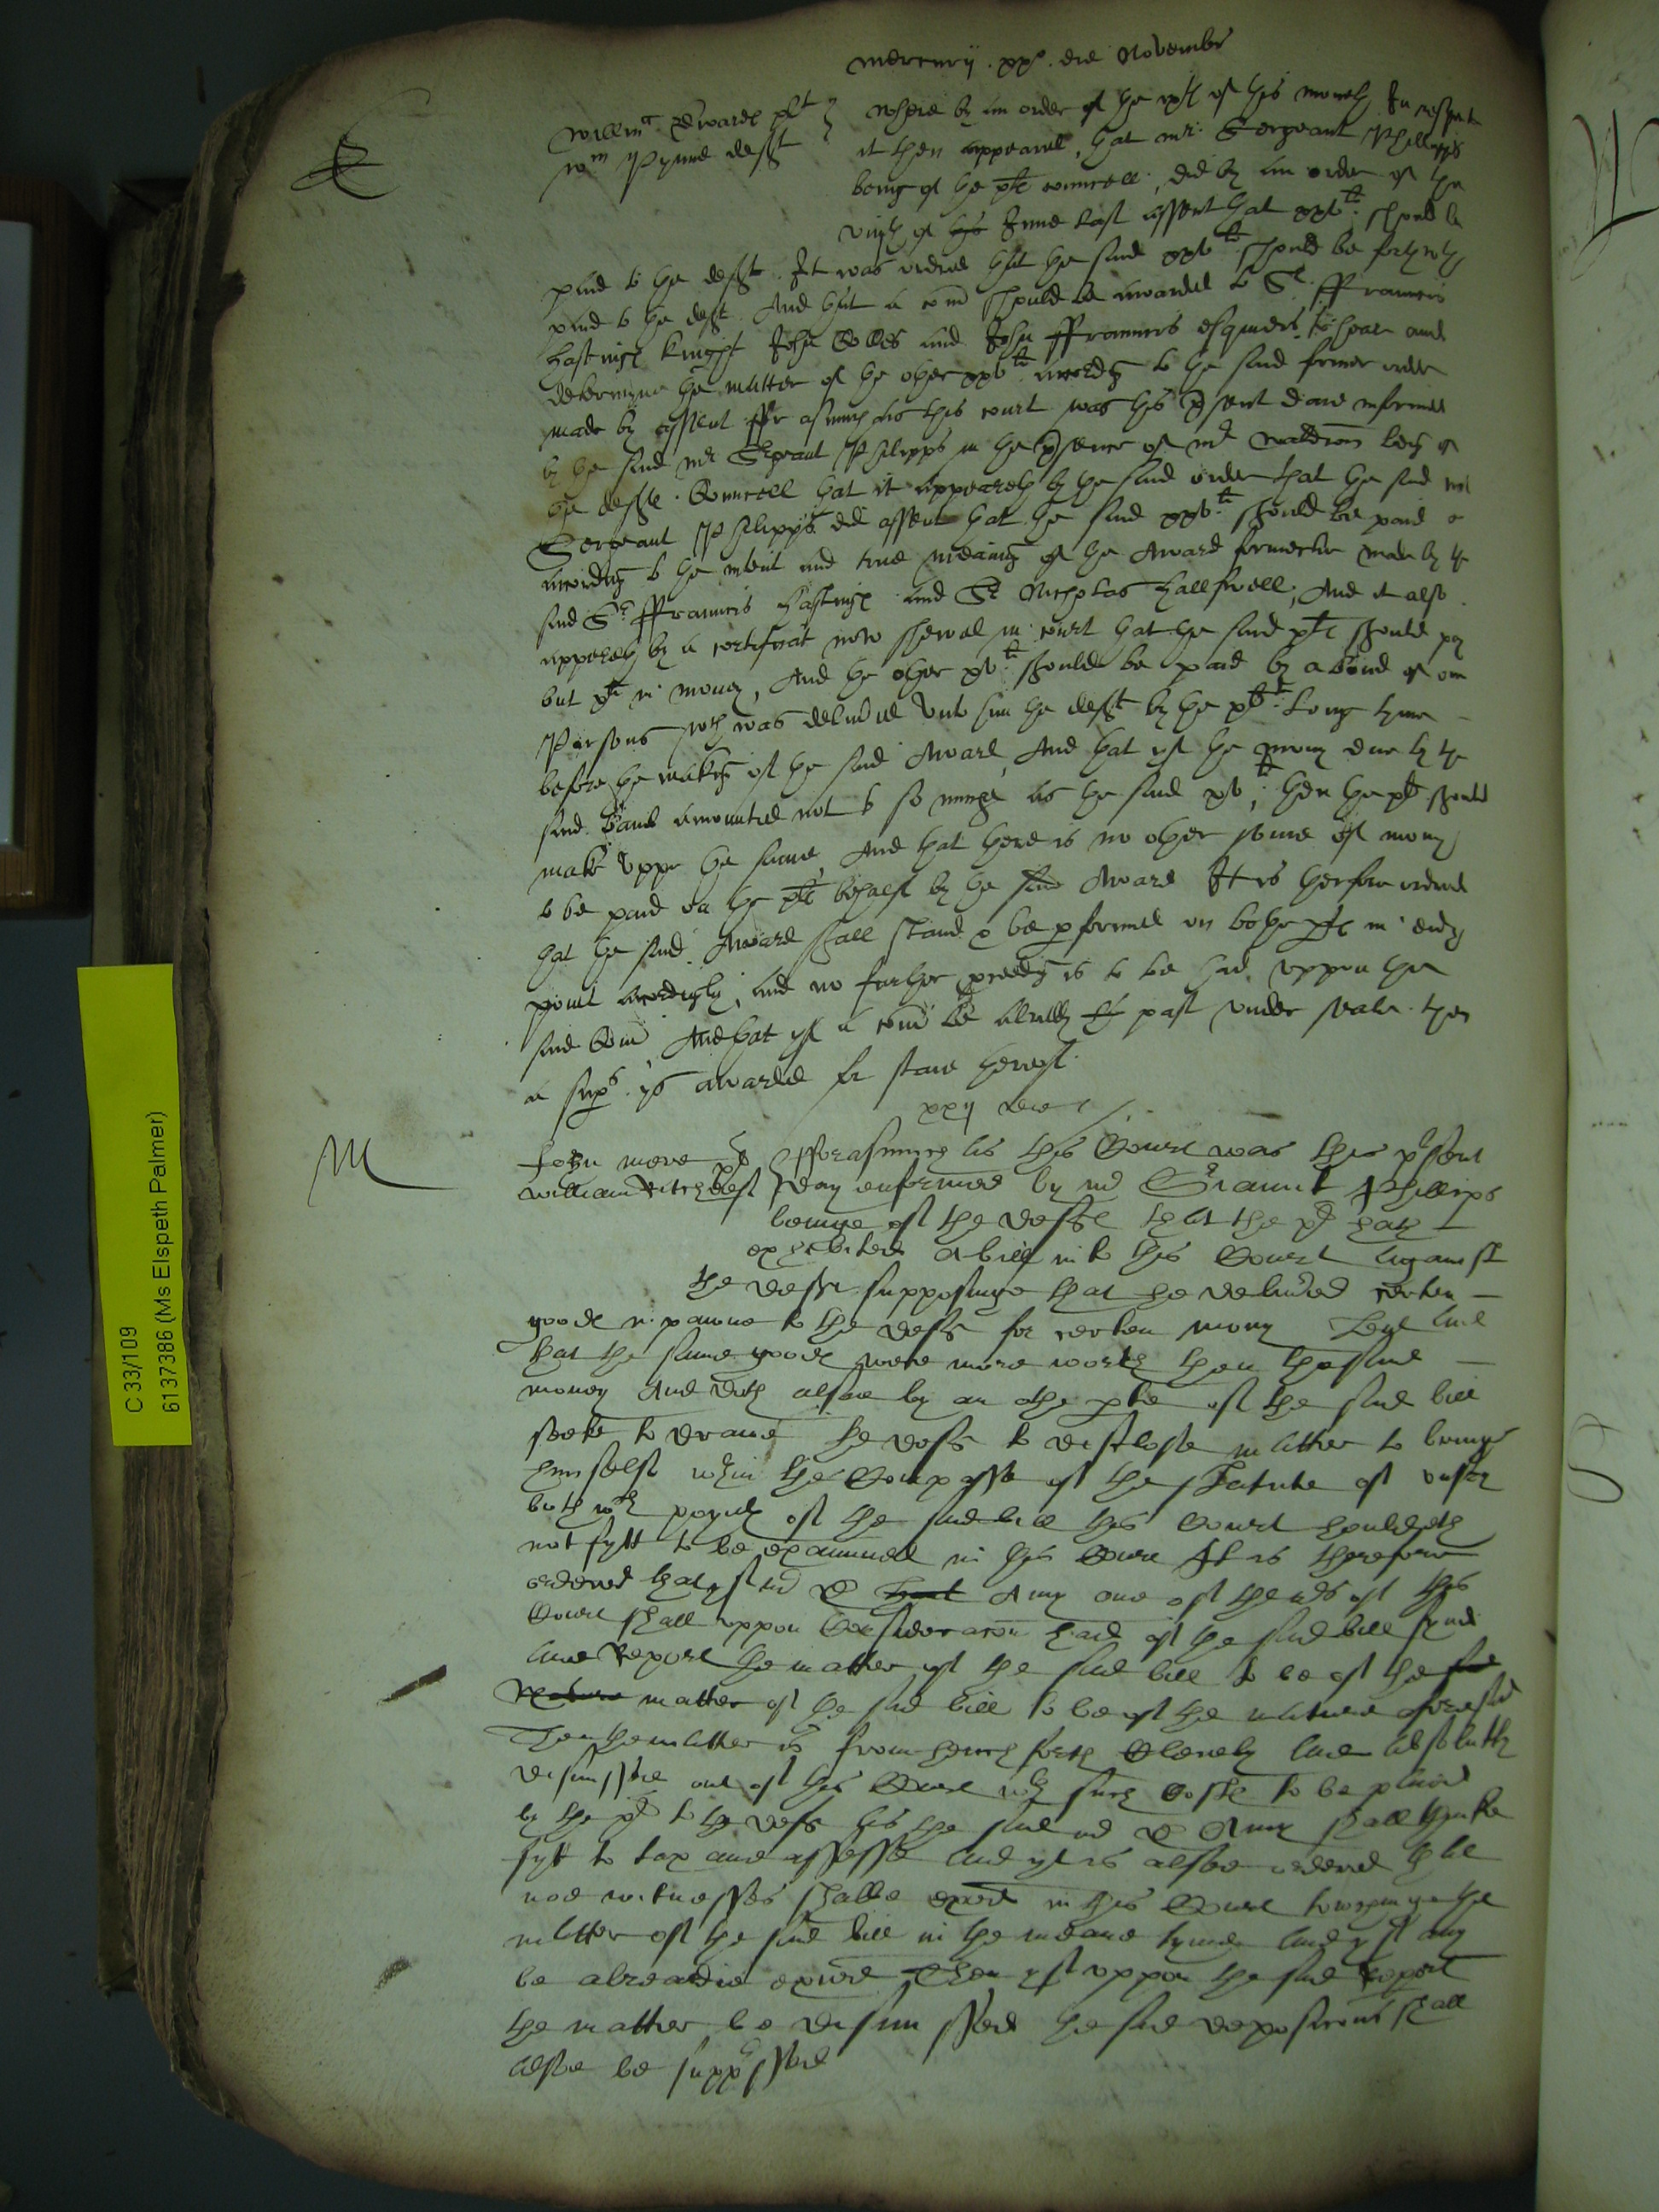 mercurij . xxo . die Novembr
Willmus Edwardes plt
wm Pynne deft
where by an order of the xth of this moneth In respect
it then appeared, that mr. Sergeant Phillipps
being of the ptes councell, did by an order of the
of this June last assent that xxvli. should be
paid to the deft. It was ordred that the said xxvli should be forthwth
paid to the deft. And that a com should be awarded to Sr. ffrauncis
hastinges knight John Colles and John ffrauncis esquiers, to heare and
determyne the matter of the other xxvli. accordg to the said former order
made by assent ffor asmuch as this court was this psent daie informed
by the said mr Sergeant Phelipps in the psence of mr waldron beig of
the deftes. Councell that it appeareth by the said order that the said mr
Sergeant Phelipps did assent that the said xxvli. should be paid
accordg to the intent and true meaninge of the Award formerlie made by the
said Sr ffrauncis hastinges and Sr Nicholas hallswell, And it also
appereth by a certificat now shewed in court that the said plt should pay
but xli in money, And the other xvli should be paid by a bond of one
Parsons wch was delivred unto him the deft by the plt. long tyme
before the makig of the said Award, And that yf the mony due by the
said. band amounted not to so muche as the said xvli, then the plt should
make uppe the same And that there is no other some of mony
to be paid on the ptes behalf by the said Award It is therfore ordred
that the said Award shall stand & be pformed on bothe ptes in every
point accordingly, and no further pceedg is to be had uppon the
said Com And that yf a com be alredy past under seale then
a sups. is awarded for staie thereof.
xxij die
M
John more plt
William deft
fforasmuch as this Court was this psent
day enformed by mr Phillips
beinge of the deftes that the plt hath
exhibited a bill in to this Court against
the deft supposinge that he delivred certen
goodes in pawne to the deft for certen mony lent and
that the same goodes were more worth then the same
money And doth alsoe by an other pte of the said bill
seeke to drawe the deft to disclose matter to bringe
himselfe wthin the Compasse of the Statute of usury
both wch poyntes of the said bill this Court houldeth
not fytt to be examined in this Court It is therefore
ordered that yf mr D Amy one of the mrs of this
Court shall uppon Consideracon had of the said bill fynd
and Report the matter of the said bill to be of the
matter of the said bill to be of the nature aforesaid
Then the matter is from henceforth Clerely and absolutly
dismissed out of this Court wth such Costes to be paied
by the plt to the deft as the said mr D Amy shall thinke
fytt to tax and assesse And yt is alsoe ordered that
noe witnesses shalbe exaied in this Court touchinge the
matter of the said bill in the meane tyme And yf any
be alreadie exaied Then yf uppon the said Report
the matter be dismissed the said deposicons shall
alsoe be suppssed
C 33/109
6137386 (Ms Elspeth Palmer)